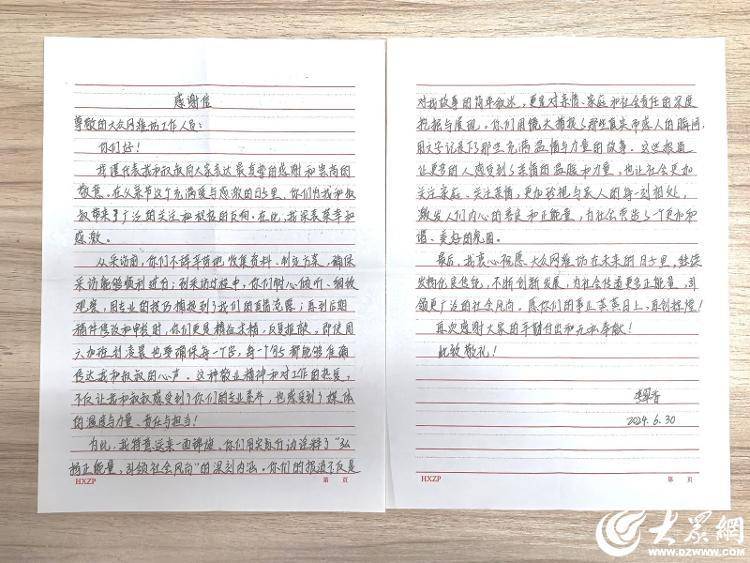 感谢信
尊敬的大众网潍坊工作人员：
你们好！
我谨代表我和叔叔向大家表达最真挚的感谢和崇高的
敬意。在父亲节这个充满爱与感激的日子里，你们为我和叔
叔带来了广泛的关注和积极的反响。在此，我深表荣幸和
感激。
从采访前，你们不辞辛苦地收集资料、制定方案，确保
采访能够顺利进行；到采访过程中，你们耐心倾听、细致
观察，用专业的技巧捕捉到了我们的真情流露；再到后期
稿件修改和审核时，你们更是精益求精，反复推敲，即使周
六加班到凌晨也要确保每一个字，每一个细节都能够准确
传达我和叔叔的心声。这种敬业精神和对工作的热爱，
不仅让我和叔叔感受到了你们的专业素养，也感受到了媒体
的温度与力量、责任与担当！
为此，我特意送来一面锦旗。你们用实际行动诠释了“弘
扬正能量，引领社会风向”的深刻内涵。你们的报道不仅是
HXZP
第 页
对我故事的简单叙述，更是对亲情、家庭和社会责任的深度
挖掘与展现。你们用镜头捕捉了那些真实而感人的瞬间，
用文字记录了那些充满温情与力量的故事。这些报道
让更多的人感受到了亲情的温暖和力量，也让社会更加
关注家庭、关注亲情，更加珍视与家人的每一刻相处，
激发人们内心的善良和正能量，为社会营造了一个更加和
谐、美好的氛围。
最后，我衷心祝愿大众网潍坊在未来的日子里，继续
发扬优良传统，不断创新发展，为社会传递更多正能量，引
领更广泛的社会风向。愿你们的事业蒸蒸日上，再创辉煌！
再次感谢大家的辛勤付出和无私奉献！
此致敬礼！
李翠香
2024.6.30
HXZP
第 页
大众網
www.dzwww.com